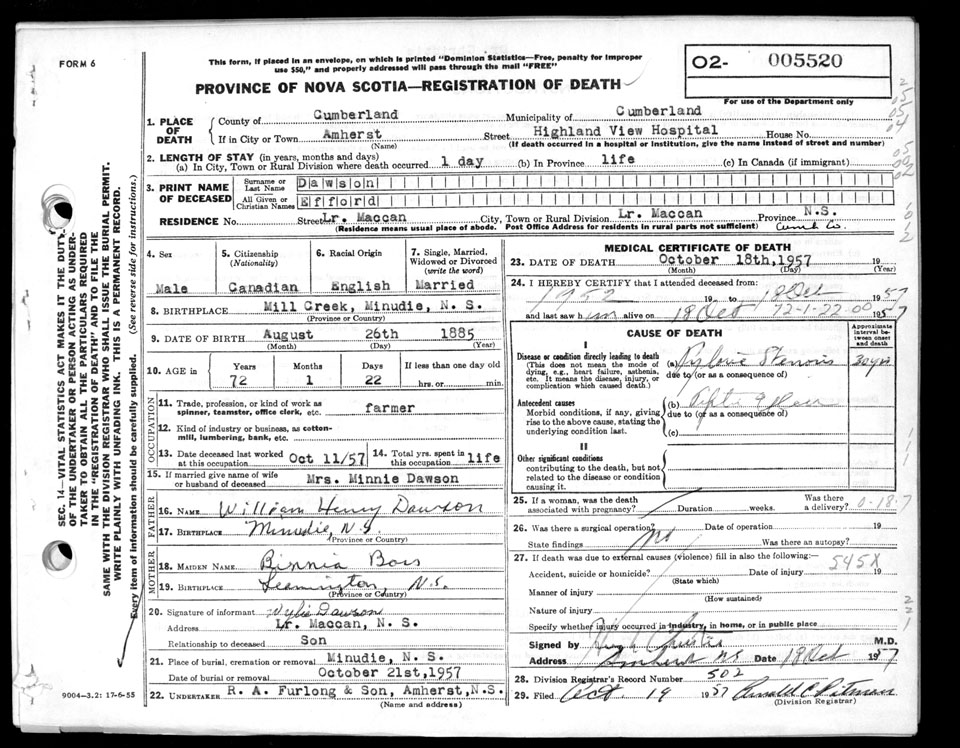 FORM 6
This form, if placed in an envelope, on which is printed "Dominion Statistics—Free, penalty for improper
use $50," and properly addressed will pass through the mail "FREE"
O2- 005520
PROVINCE OF NOVA SCOTIA—REGISTRATION OF DEATH
For use of the Department only
1. PLACE OF DEATH
County of Cumberland Municipality of Cumberland
If in City or Town Amherst Street Highland View Hospital House No.
(Name) (If death occurred in a hospital or Institution, give the name instead of street and number)
2. LENGTH OF STAY (in years, months and days)
(a) In City, Town or Rural Division where death occurred 1 day (b) In Province life (c) In Canada (if immigrant)
3. PRINT NAME OF DECEASED
Surname or Last Name Dawson
All Given or Christian Names Efford
RESIDENCE No. Street Lr. Maccan City, Town or Rural Division Lr. Maccan Province N.S.
(Residence means usual place of abode. Post Office Address for residents in rural parts not sufficient) Cumb. Co.
4. Sex 5. Citizenship (Nationality) 6. Racial Origin 7. Single, Married, Widowed or Divorced (write the word)
Male Canadian English Married
8. BIRTHPLACE Mill Creek, Minudie, N. S.
(Province or Country)
9. DATE OF BIRTH August 26th 1885
(Month) (Day) (Year)
10. AGE in Years Months Days If less than one day old
72 1 22 hrs. or min.
OCCUPATION
11. Trade, profession, or kind of work as spinner, teamster, office clerk, etc. farmer
12. Kind of industry or business, as cotton-mill, lumbering, bank, etc.
13. Date deceased last worked at this occupation Oct 11/57 14. Total yrs. spent in this occupation life
15. If married give name of wife or husband of deceased Mrs. Minnie Dawson
FATHER
16. NAME William Henry Dawson
17. BIRTHPLACE Minudie, N.S.
(Province or Country)
MOTHER
18. MAIDEN NAME Birnia Bois
19. BIRTHPLACE Leamington, N.S.
(Province or Country)
20. Signature of informant Wylie Dawson
Address Lr. Maccan, N. S.
Relationship to deceased Son
21. Place of burial, cremation or removal Minudie, N. S.
Date of burial or removal October 21st, 1957
22. UNDERTAKER R. A. Furlong & Son, Amherst, N.S.
(Name and address)
MEDICAL CERTIFICATE OF DEATH
23. DATE OF DEATH October 18th, 1957 19
(Month) (Day) (Year)
24. I HEREBY CERTIFY that I attended deceased from:
1952 19 to 18 Oct 1957
and last saw him alive on 18 Oct 72-1-22-00 1957
CAUSE OF DEATH
Approximate interval between onset and death
I
Disease or condition directly leading to death
(This does not mean the mode of dying, e.g., heart failure, asthenia, etc. It means the disease, injury, or complication which caused death.)
(a) Pyloric Stenosis 30 yrs
due to (or as a consequence of)
Antecedent causes
Morbid conditions, if any, giving rise to the above cause, stating the underlying condition last.
(b) Peptic Ulcer
due to (or as a consequence of)
(c)
II
Other significant conditions
contributing to the death, but not related to the disease or condition causing it.
25. If a woman, was the death associated with pregnancy? Duration weeks. Was there a delivery? 0-18-7
26. Was there a surgical operation? No Date of operation 19
State findings Was there an autopsy?
27. If death was due to external causes (violence) fill in also the following:— 545X
Accident, suicide or homicide? Date of injury 19
(State which)
Manner of injury
(How sustained)
Nature of injury
Specify whether injury occurred in industry, in home, or in public place
Signed by Hugh Christie M.D.
Address Amherst NS Date 18 Oct 1957
28. Division Registrar's Record Number 502
29. Filed Oct 19 1957
(Division Registrar)
SEC. 14—VITAL STATISTICS ACT MAKES IT THE DUTY
OF THE UNDERTAKER OR PERSON ACTING AS UNDER-
TAKER TO OBTAIN ALL THE PARTICULARS REQUIRED
IN THE "REGISTRATION OF DEATH" AND TO FILE THE
SAME WITH THE DIVISION REGISTRAR WHO SHALL ISSUE THE BURIAL PERMIT.
WRITE PLAINLY WITH UNFADING INK. THIS IS A PERMANENT RECORD.
Every item of information should be carefully supplied. (See reverse side for instructions.)
9004—3.2: 17-6-55